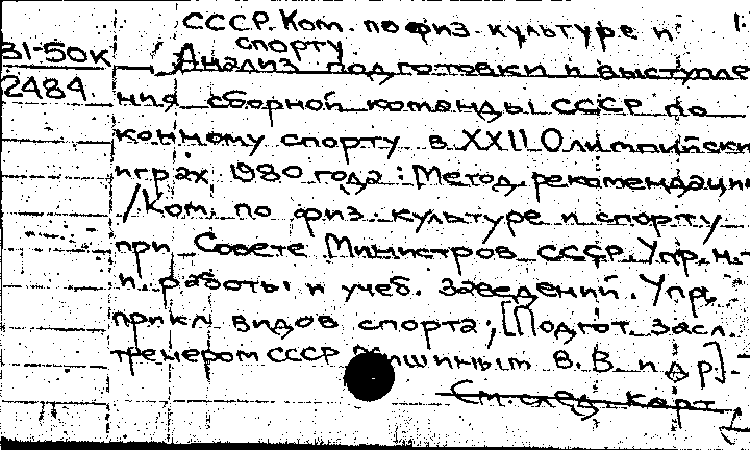 СССР. Ком. по физ. культуре и 1.
спорту.
81-50к Анализ подготовки и выступле
2484. ния сборной команды СССР по
конному спорту в XXII Олимпийски
играх 1980 года : Метод. рекомендации
/Ком. по физ. культуре и спорту
при Совете Министров СССР. Упр. н.-
и. работы и учеб. заведений. Упр.
прикл видов спорта; [Подгот. засл.
тренером СССР Мишиным В. В. и др.].-
См. след. карт.